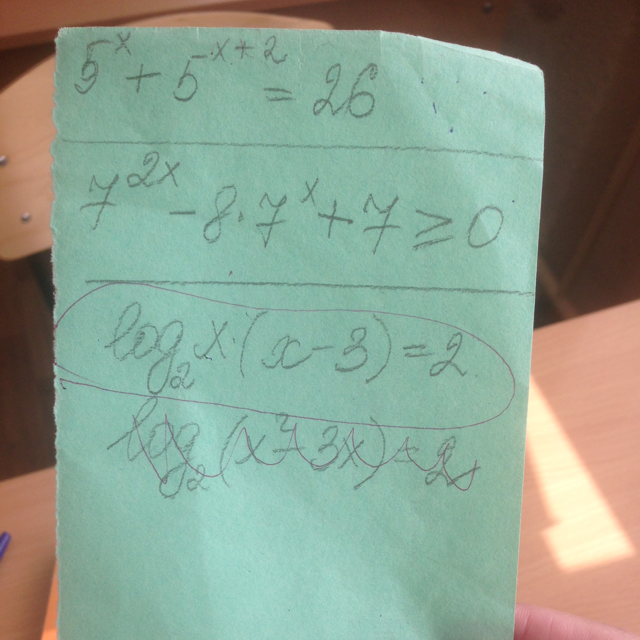 5^x + 5^{x+2} = 26
7^{2x} - 8·7^x + 7 ≥ 0
log_2 x·(x-3) = 2
log_2(x^2-3x) = 2